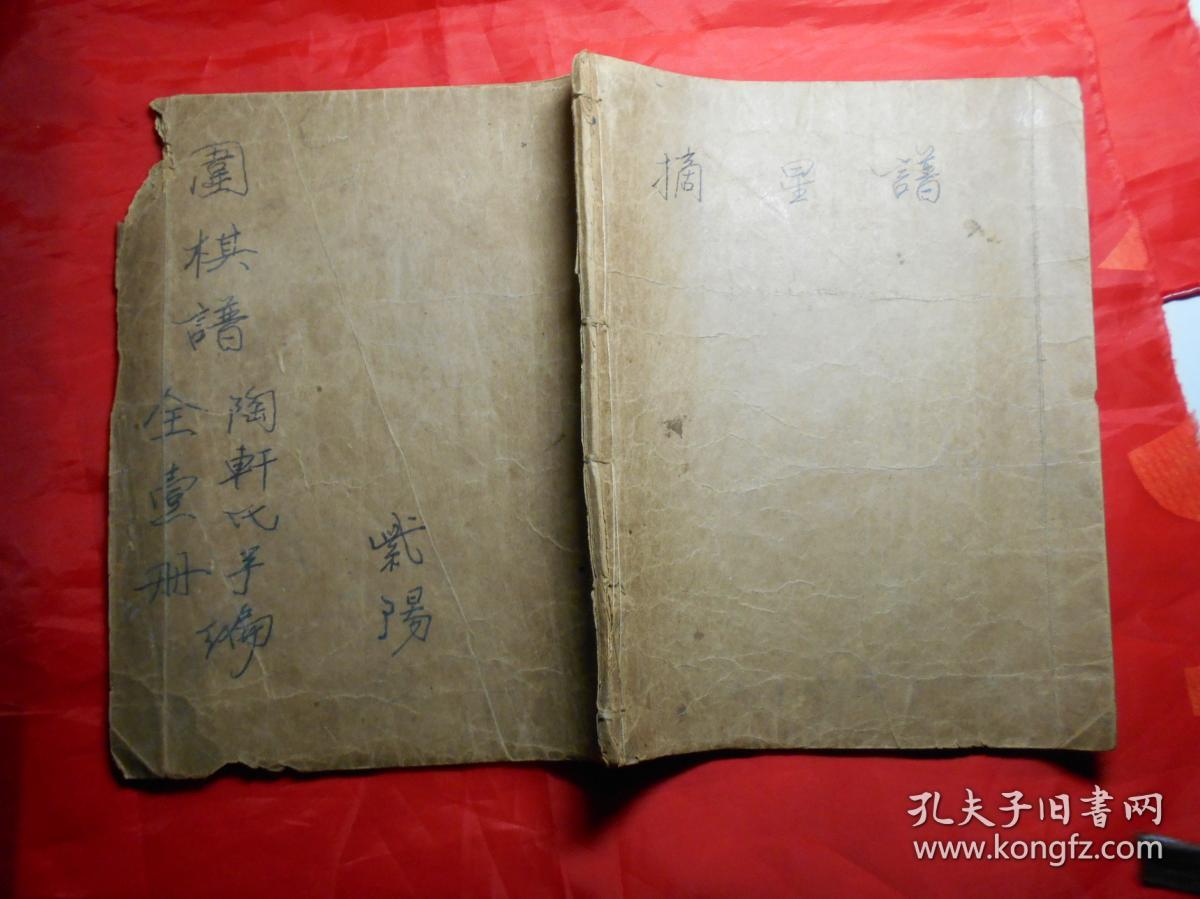 圍棋譜
陶軒氏手編
全壹冊
紫陽
摘星譜
孔夫子旧书网
www.kongfz.com